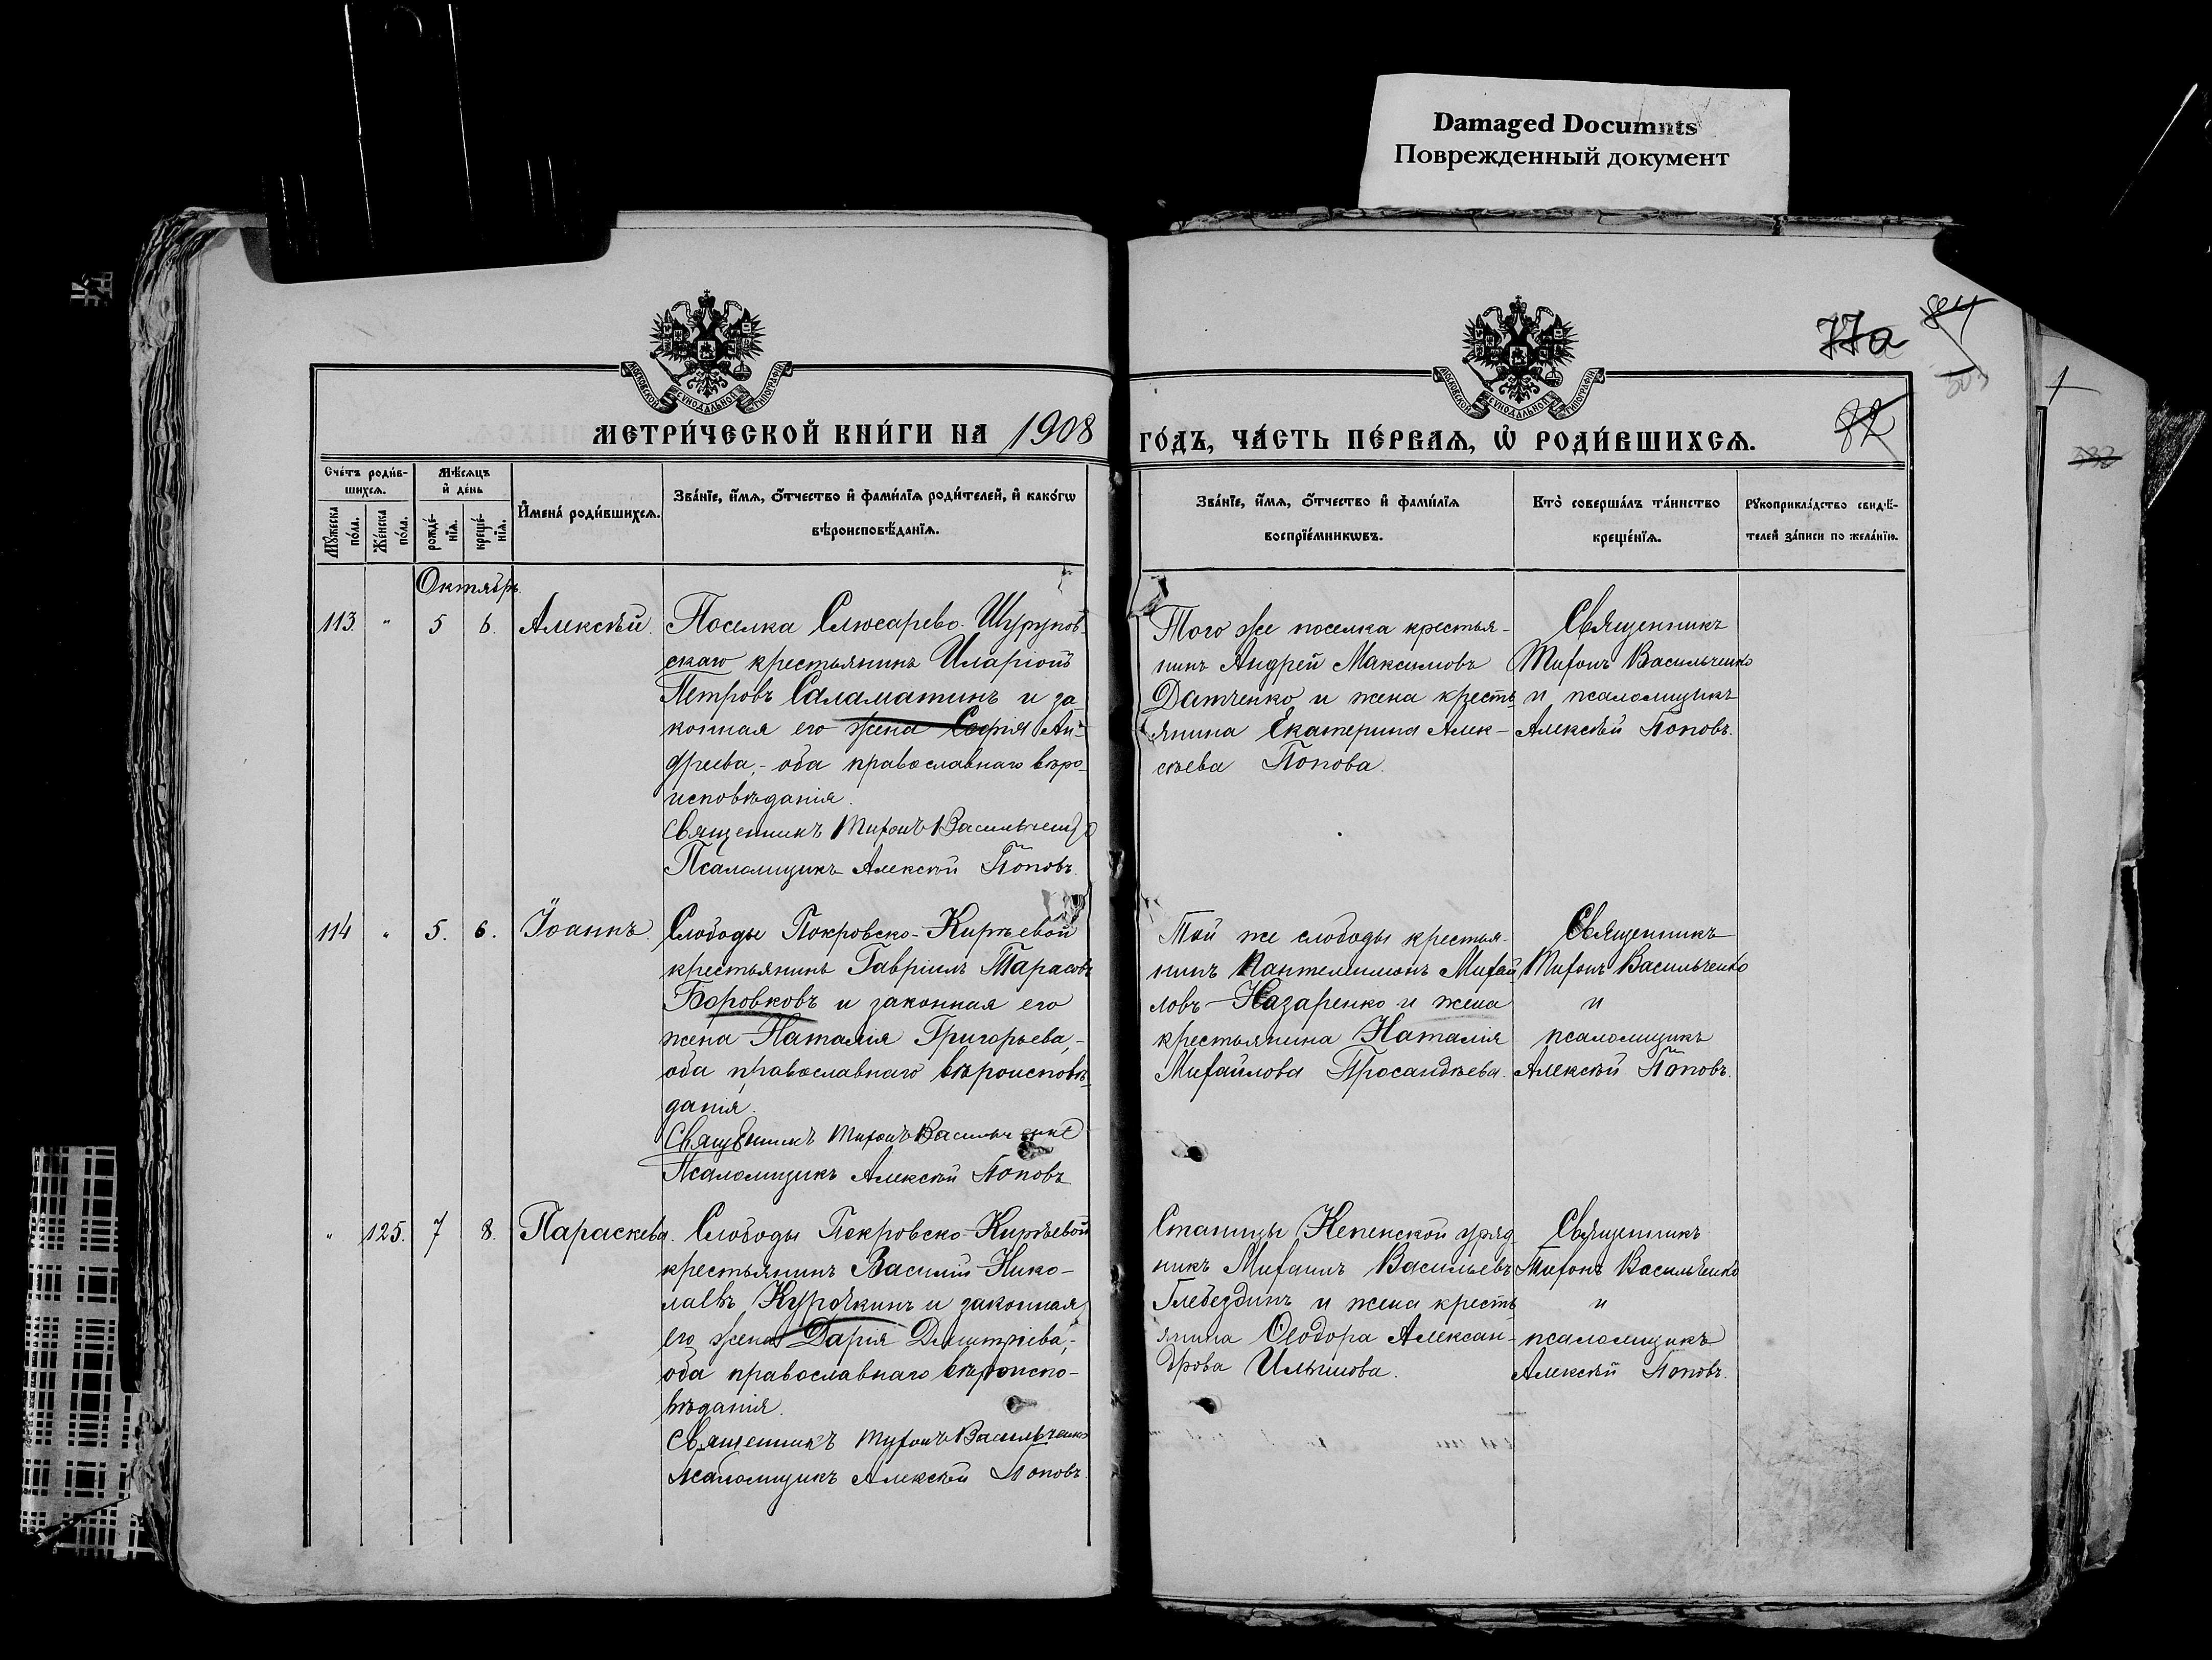 Damaged Documnts
Поврежденный документ
МОСКОВСКОЙ СУНОДАЛЬНОЙ ТИПОГРАФІИ
МОСКОВСКОЙ СУНОДАЛЬНОЙ ТИПОГРАФІИ
77а
84
82
МЕТРИ́ЧЕСКОЙ КНИ́ГИ НА 1908 ГО́ДЪ, ЧА́СТЬ ПЕ́РВАѦ, Ѡ҆ РОДИ́ВШИХСѦ.
Сче́тъ роди́в-
шихсѧ.
Мѣ́сѧцъ
и҆ де́нь
Мꙋ́жеска
по́ла.
Же́нска
по́ла.
рожде́-
нїѧ.
креще́-
нїѧ.
И҆мена̀ роди́вшихсѧ.
Зва́нїе, и҆́мѧ, ѻ҆́тчество и҆ фами́лїѧ роди́телей, и҆ како́гѡ
вѣроисповѣ́данїѧ.
Зва́нїе, и҆́мѧ, ѻ҆́тчество и҆ фами́лїѧ
воспрїе́мникѡвъ.
Кто̀ соверша́лъ та́инство
креще́нїѧ.
Рꙋкоприкла́дство свидѣ́-
телей за́писи по жела́нїю.
Октябрь
113. " 5 6. Алексѣй.
Поселка Слюсарево-Шурупов-
скаго крестьянинъ Иларіонъ
Петровъ Саламатинъ и за-
конная его жена Софія Ан-
дреева,- оба православнаго вѣро-
исповѣданія.
Священникъ Тихонъ Васильченко
Псаломщикъ Алексѣй Поповъ.
Того же поселка крестья-
нинъ Андрей Максимовъ
Датченко и жена кресть
янина Екатерина Алек-
сѣева Попова.
Священникъ
Тихонъ Васильченко
и псаломщикъ
Алексѣй Поповъ.
114 " 5. 6. Іоаннъ.
Слободы Покровско-Кирѣевой
крестьянинъ Гавріилъ Тарасовъ
Боровковъ и законная его
жена Наталія Григорьева,-
оба православнаго вѣроисповѣ-
данія.
Священникъ Тихонъ Васильченко
Псаломщикъ Алексѣй Поповъ
Той же слободы крестья-
нинъ Пантелеимонъ Михай
ловъ Назаренко и жена
крестьянина Наталія
Михайлова Просандѣева.
Священникъ
Тихонъ Васильченко
и
псаломщикъ
Алексѣй Поповъ.
" 125. 7 8. Параскева.
Слободы Покровско-Кирѣевой
крестьянинъ Василій Нико-
лаевъ Курочкинъ и законная
его жена Дарія Димитріева,-
оба православнаго вѣроиспо-
вѣданія.
Священникъ Тихонъ Васильченко
Псаломщикъ Алексѣй Поповъ.
Станицы Кепенской уряд
никъ Михаилъ Васильевъ
Глебездинъ и жена кресть
янина Ѳеодора Алексан-
дрова Ильинова.
Священникъ
Тихонъ Васильченко
и
псаломщикъ
Алексѣй Поповъ.